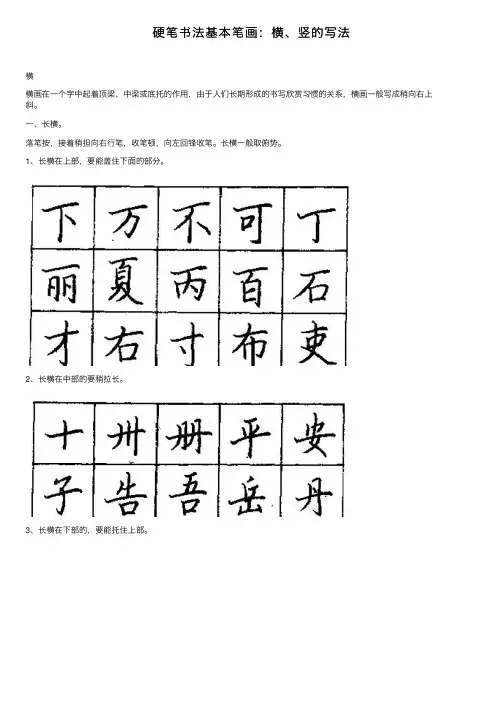 硬笔书法基本笔画：横、竖的写法
横
横画在一个字中起着顶梁、中梁或底托的作用，由于人们长期形成的书写欣赏习惯的关系，横画一般写成稍向右上
斜。
一、长横。
落笔按，接着稍担向右行笔，收笔顿，向左回锋收笔。长横一般取俯势。
1、长横在上部，要能盖住下面的部分。
下 万 不 可 丁
丽 夏 丙 百 石
才 右 寸 布 吏
2、长横在中部的要稍拉长。
十 卅 册 平 安
子 告 吾 岳 丹
3、长横在下部的，要能托住上部。